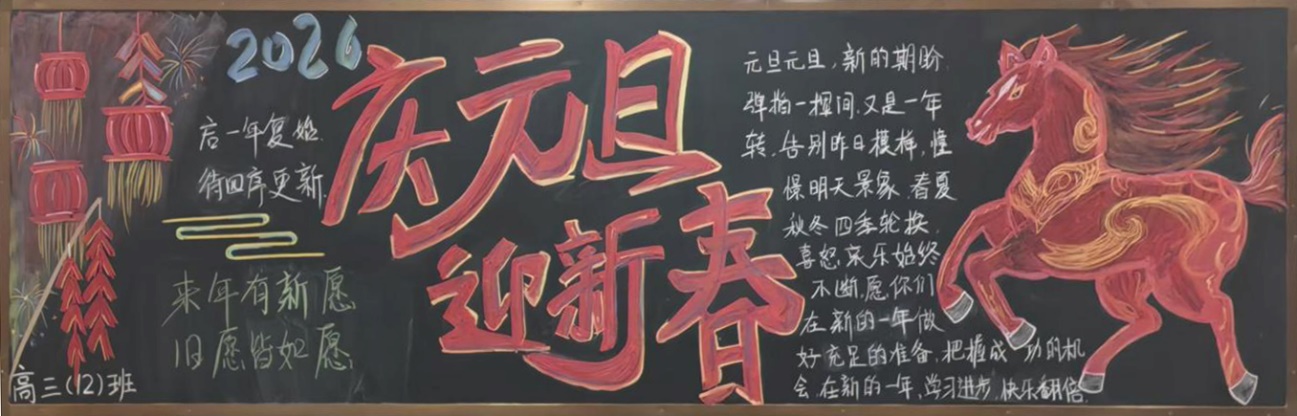 2026
庆元旦
迎新春
后一年复始
待四序更新
来年有新愿
旧愿皆如愿
高三(12)班
元旦元旦,新的期盼
弹指一挥间,又是一年
转,告别昨日模样,憧
憬明天景象,春夏
秋冬四季轮换,
喜怒哀乐始终
不断,愿你们
在新的一年做
好充足的准备,把握成功的机
会,在新的一年,学习进步,快乐翻倍